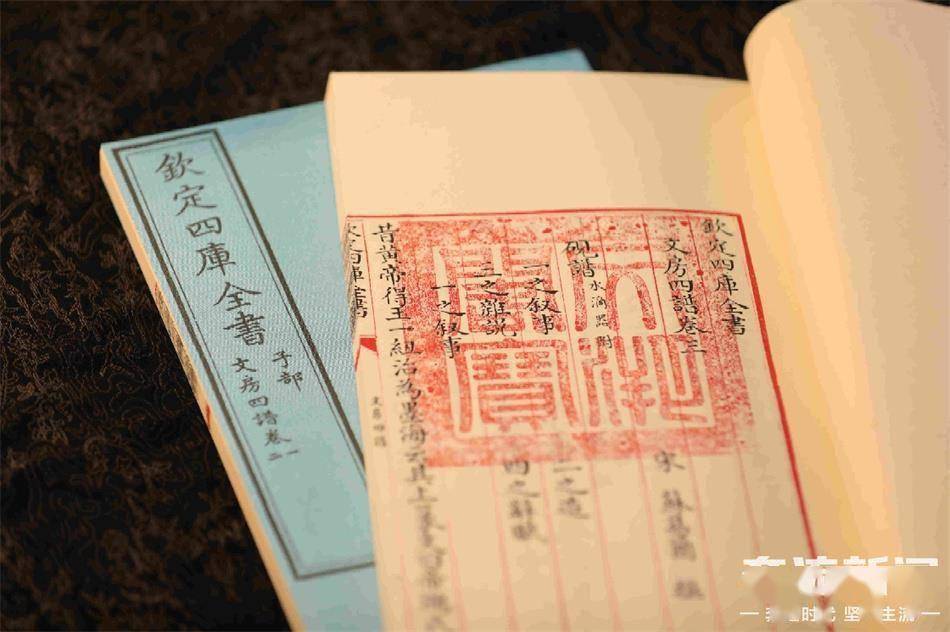 欽定四庫全書
子部
文房四譜卷一
二
欽定四庫全書
文房四譜卷三
宋 蘇易簡 撰
硯譜水滴器附
一之叙事
二之造
三之雜說
四之辭賦
一之叙事
昔黄帝得玉一紐治為墨海云其上篆文曰帝鴻氏
欽定四庫全書
文房四譜